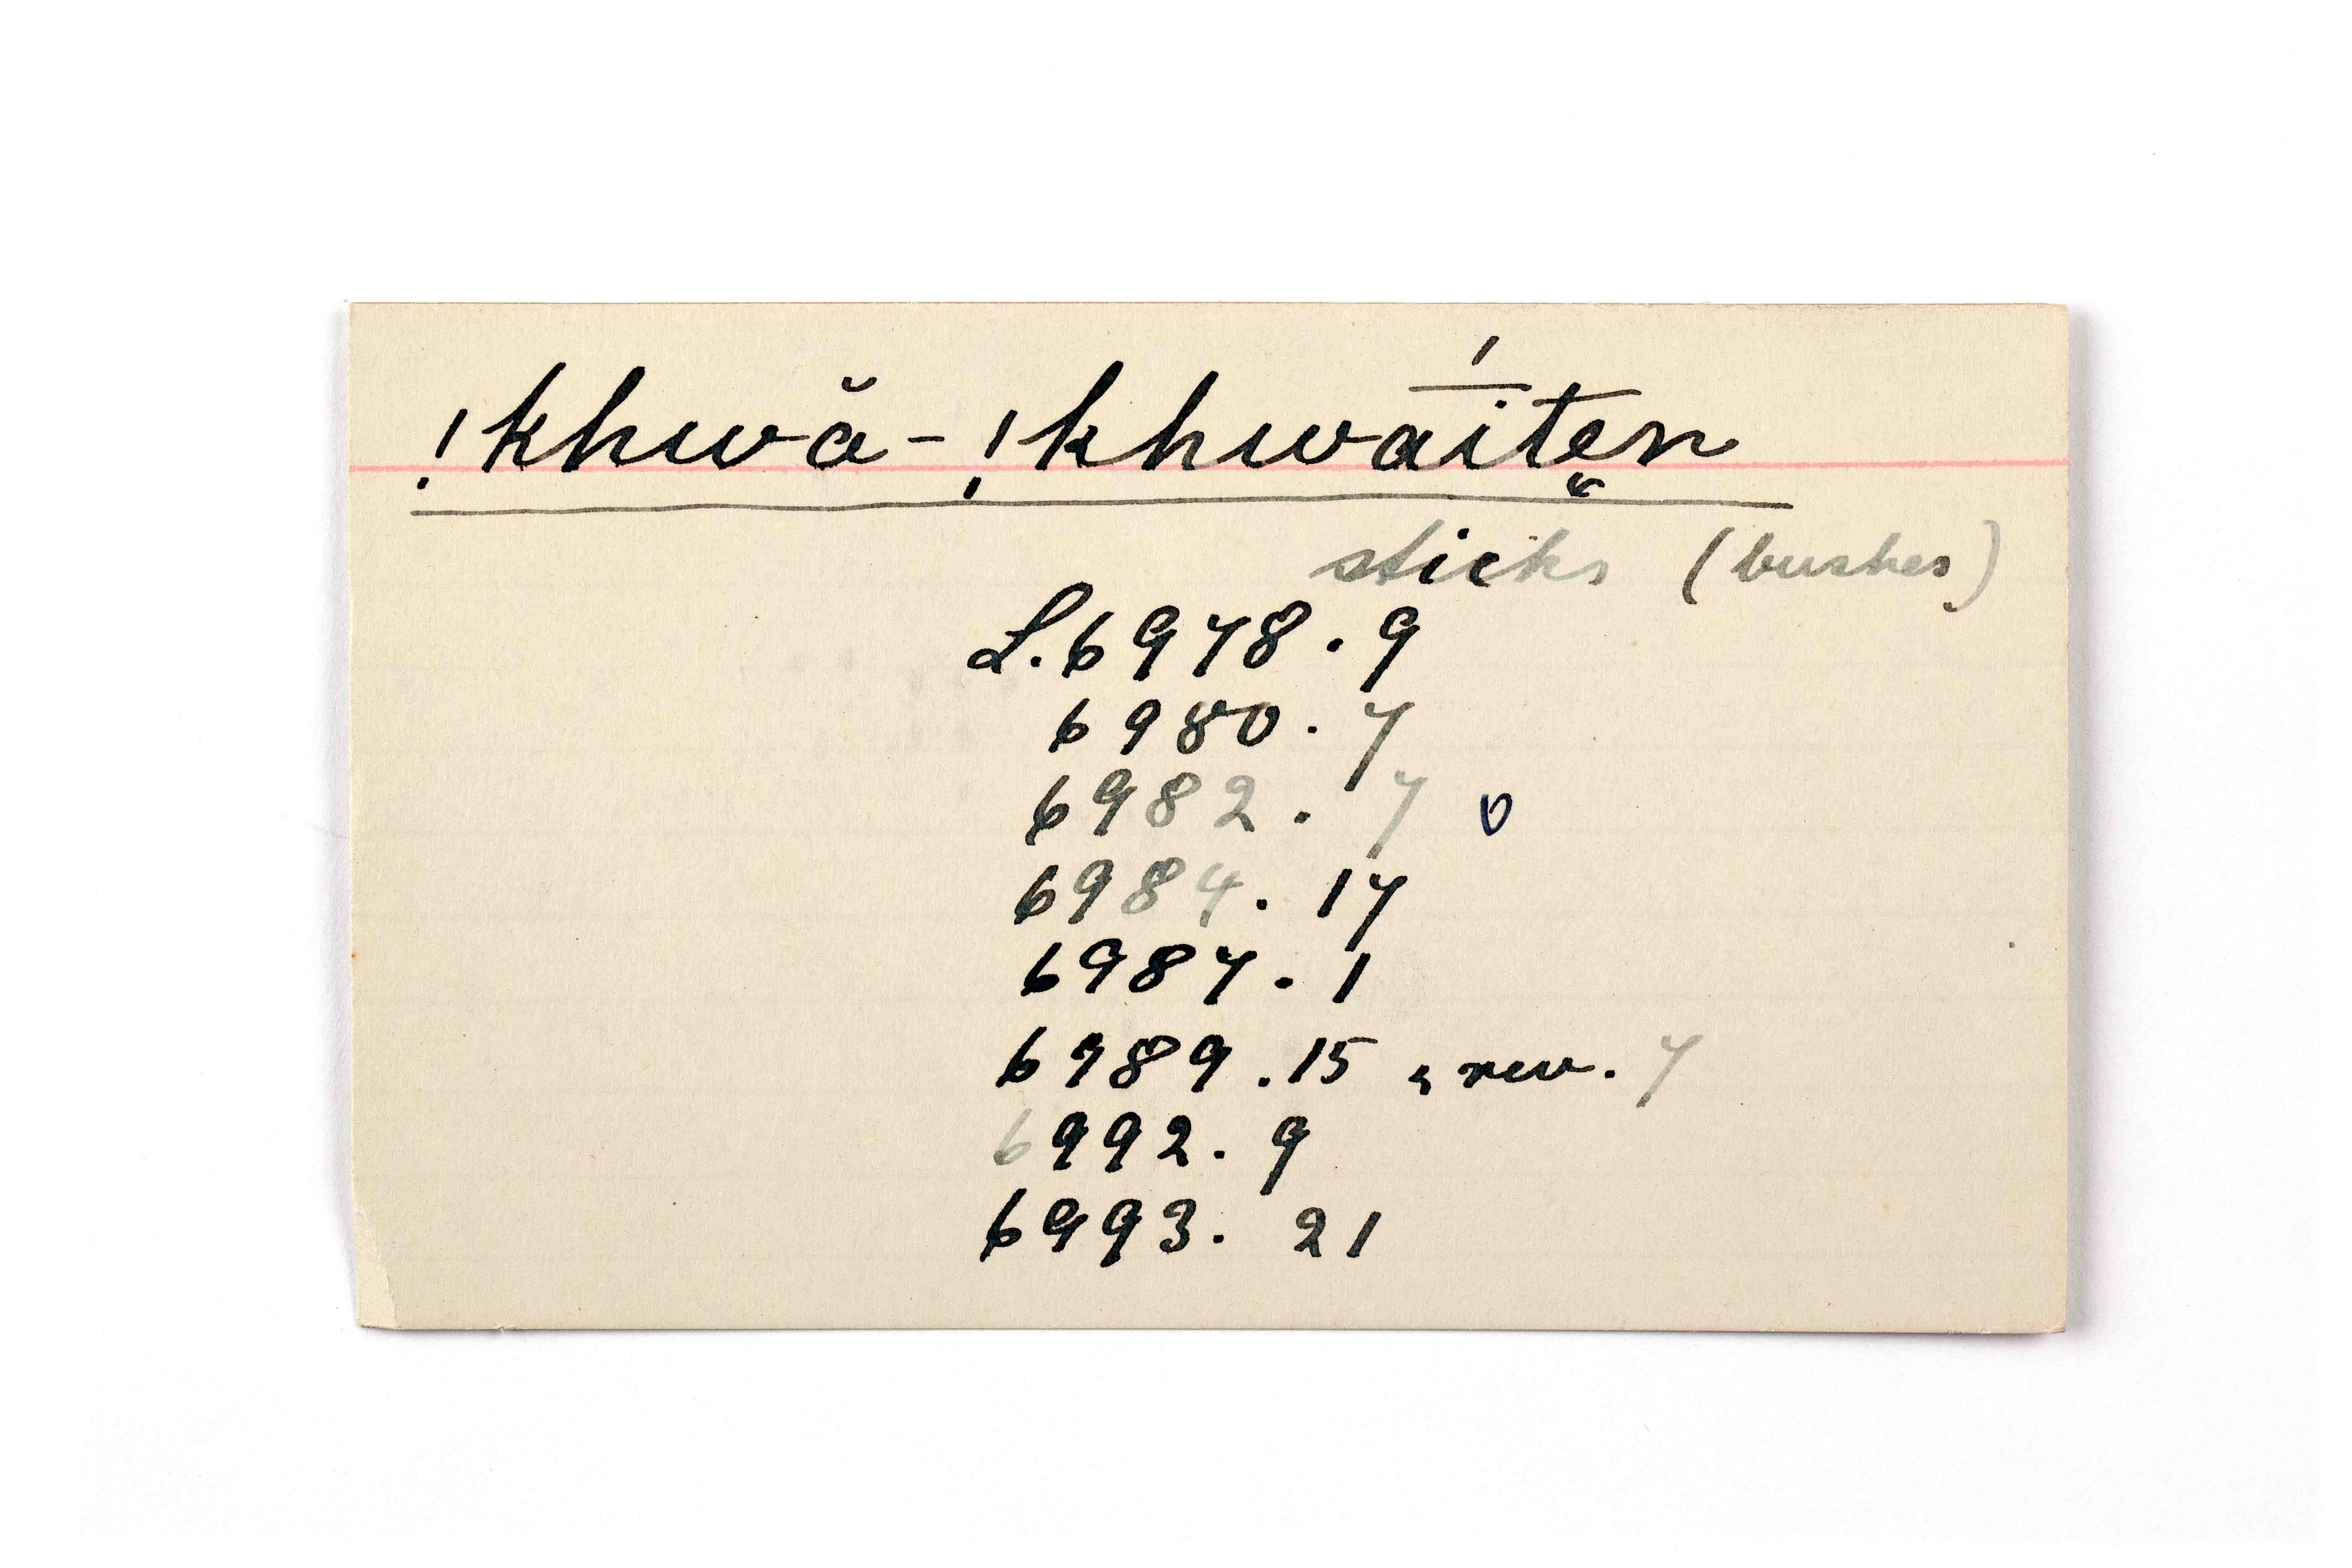 !khwă-!khwā́itẹn
sticks (bushes)
L.6978.9
6980.7
6982.7
6984.17
6987.1
6989.15 & rev. 7
6992.9
6993.21